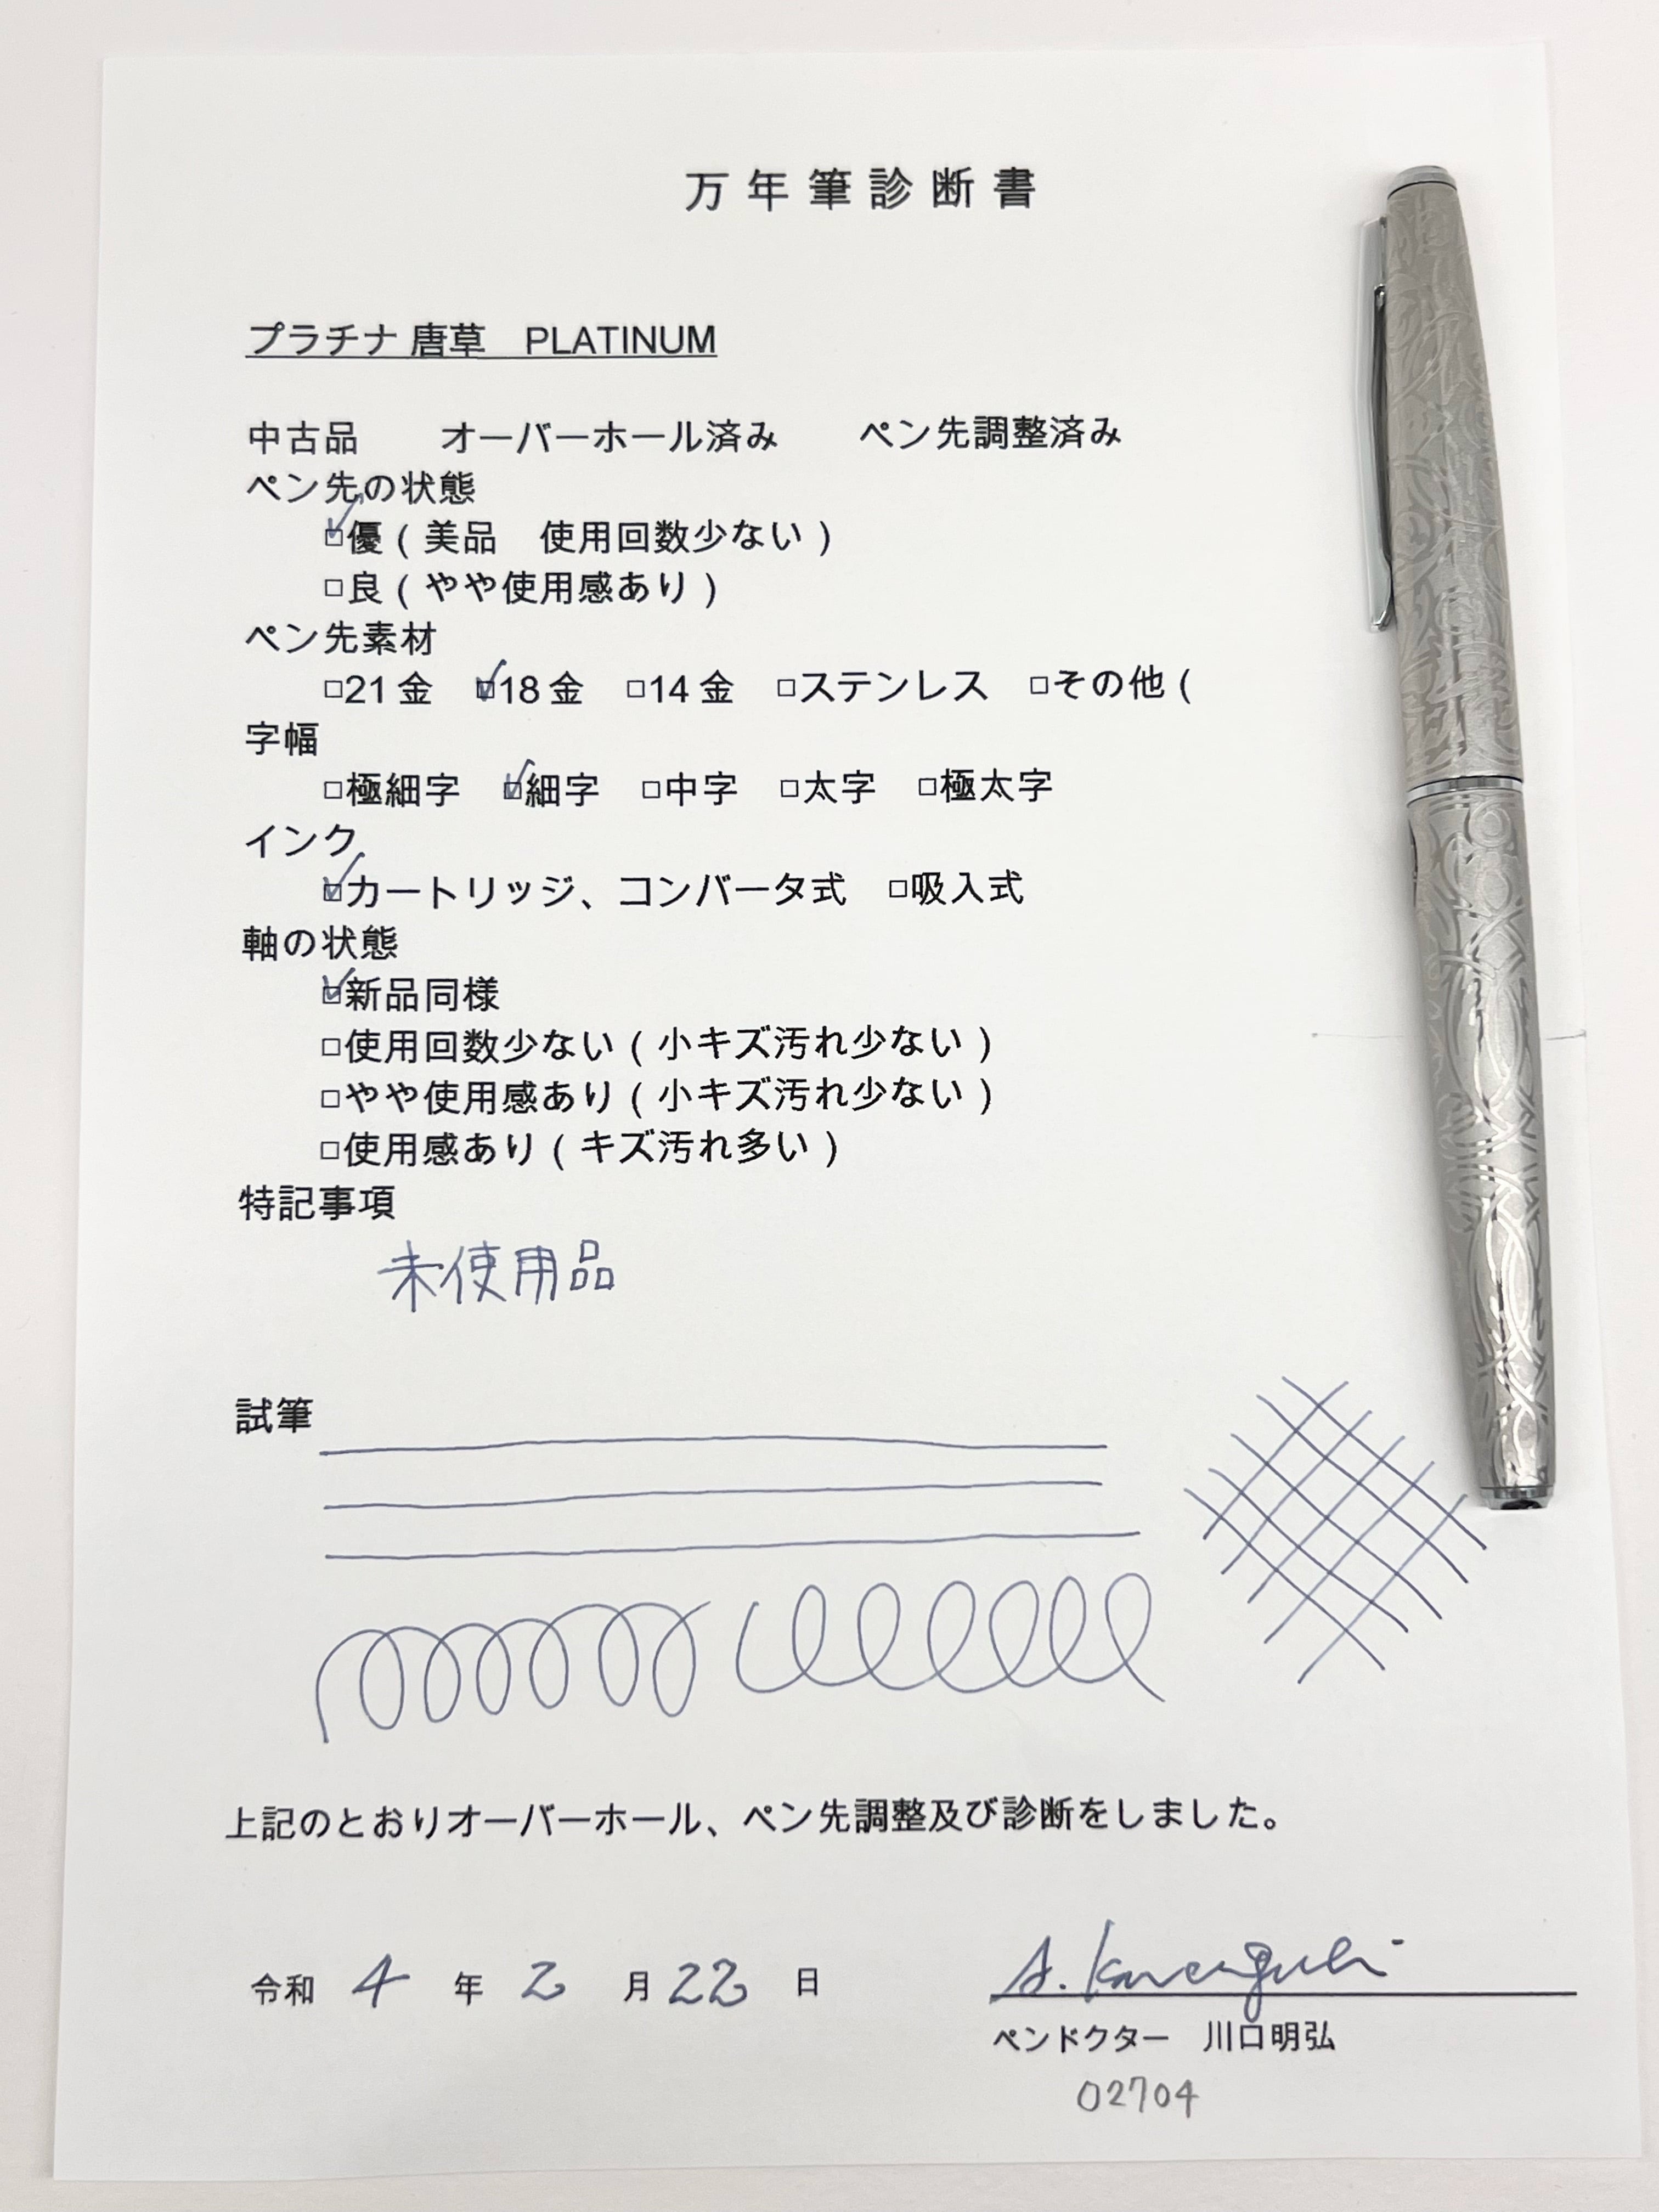 万年筆診断書
プラチナ 唐草　PLATINUM
中古品　　オーバーホール済み　　ペン先調整済み
ペン先の状態
☑優（美品　使用回数少ない）
□良（やや使用感あり）
ペン先素材
□21金　☑18金　□14金　□ステンレス　□その他（
字幅
□極細字　☑細字　□中字　□太字　□極太字
インク
☑カートリッジ、コンバータ式　□吸入式
軸の状態
☑新品同様
□使用回数少ない（小キズ汚れ少ない）
□やや使用感あり（小キズ汚れ少ない）
□使用感あり（キズ汚れ多い）
特記事項
未使用品
試筆
上記のとおりオーバーホール、ペン先調整及び診断をしました。
令和 4 年 2 月 22 日　A. Kawaguchi
ペンドクター　川口明弘
02704